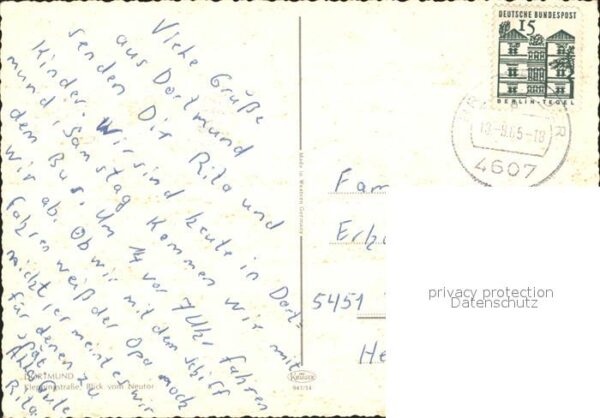 Viele Grüße
aus Dortmund
senden Dir Rita und
Kinder. Wir sind heute in Dort=
mund, Samstag kommen wir mit
dem Bus. Um 14 vor 7 Uhr fahren
wir ab. Ob wir mit dem Schiff
fahren weiß der Opa noch
nicht, er meint es wir
für denen zu
Alles Gute
Rita.
DORTMUND
Kleppingstraße, Blick vom Neutor
Made in Western Germany
KRÜGER
941/14
DEUTSCHE BUNDESPOST
15
BERLIN-TEGEL
13.-9.65-18
4607
Fam
Erh
5451
He
privacy protection
Datenschutz